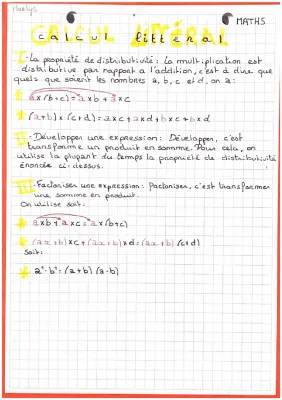 Maelys
MATHS
calcul littéral
I - La propriété de distributivité : La multiplication est
distributive par rapport a l'addition, c'est à dire que
quels que soient les nombres a, b, c et d, on a :
a x (b + c) = a x b + a x c
(a + b) x (c + d) = a x c + a x d + b x c + b x d
II - Développer une expression : Développer, c'est
transforme un produit en somme. Pour cela, on
utilise la plupart du temps la propriété de distributivité
énoncée ci-dessus.
III - Factoriser une expression : Factoriser, c'est transformer
une somme en produit.
On utilise soit :
a x b + a x c = a x (b + c)
(a x + b) x c + (a x + b) x d = (a x + b) (c + d)
Soit :
a² - b² = (a + b) (a - b)